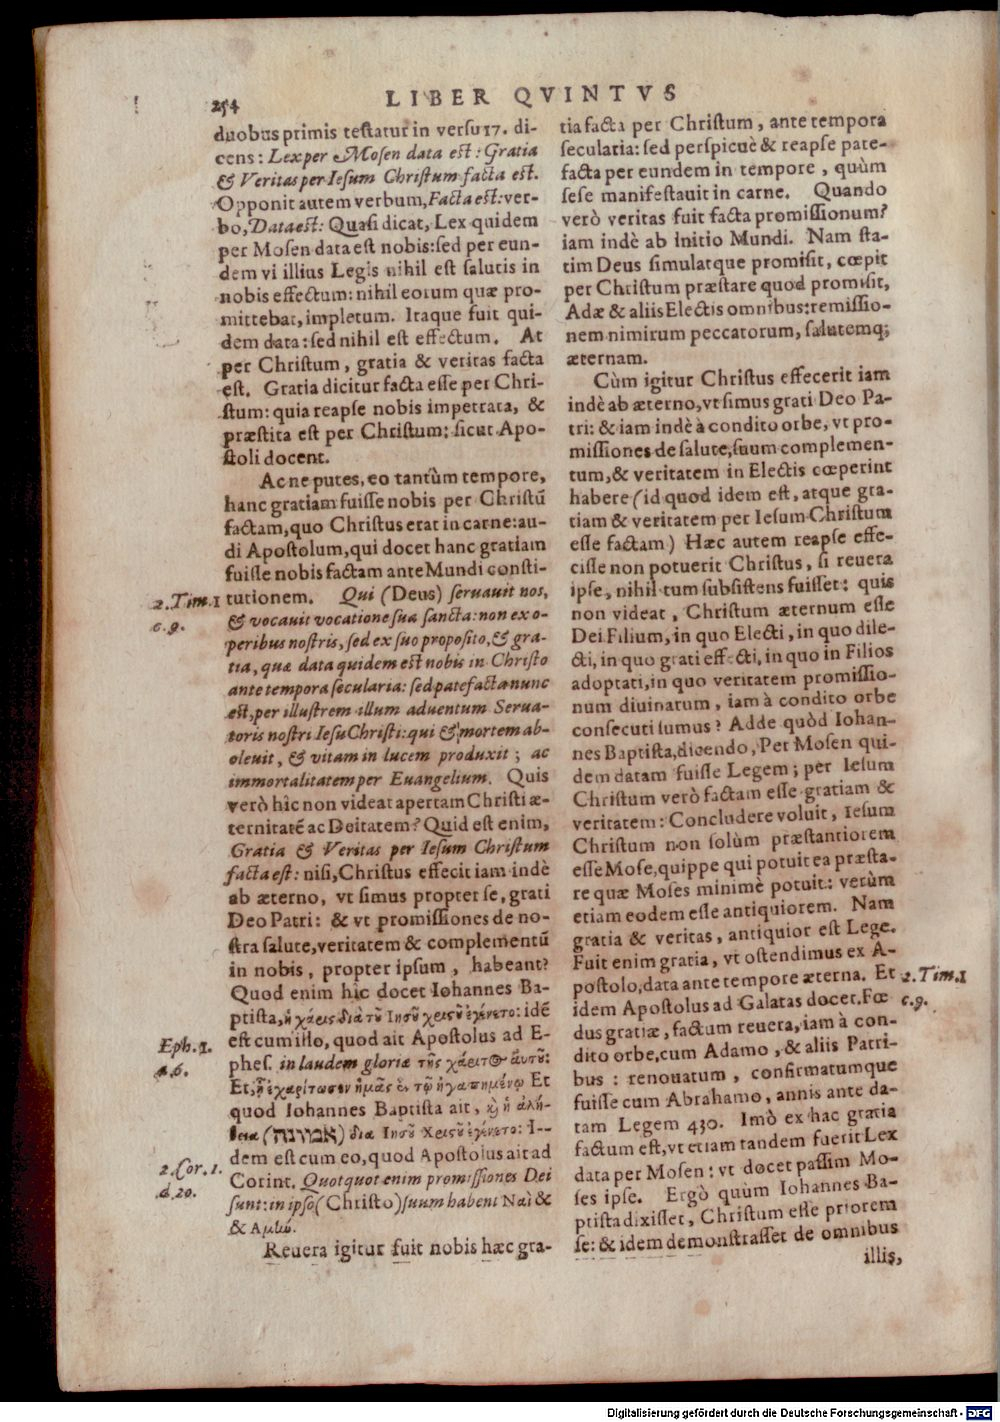 254
LIBER QVINTVS
duobus primis testatur in versu 17. di-
cens: Lex per Mosen data est: Gratia
& Veritas per Iesum Christum facta est.
Opponit autem verbum, Facta est: ver-
bo, Data est: Quasi dicat, Lex quidem
per Mosen data est nobis: sed per eun-
dem vi illius Legis nihil est salutis in
nobis effectum: nihil eorum quæ pro-
mittebat, impletum. Itaque fuit qui-
dem data: sed nihil est effectum. At
per Christum, gratia & veritas facta
est. Gratia dicitur facta esse per Chri-
stum: quia reapse nobis impetrata, &
præstita est per Christum; sicut Apo-
stoli docent.
Ac ne putes, eo tantùm tempore,
hanc gratiam fuisse nobis per Christū
factam, quo Christus erat in carne: au-
di Apostolum, qui docet hanc gratiam
fuisse nobis factam ante Mundi consti-
2. Tim. 1
c. 9.
tutionem. Qui (Deus) seruauit nos,
& vocauit vocatione sua sancta: non ex o-
peribus nostris, sed ex suo proposito, & gra-
tia, quæ data quidem est nobis in Christo
ante tempora secularia: sed patefacta nunc
est, per illustrem illum aduentum Serua-
toris nostri Iesu Christi: qui & mortem ab-
oleuit, & vitam in lucem produxit; ac
immortalitatem per Euangelium. Quis
verò hic non videat apertam Christi æ-
ternitatē ac Deitatem? Quid est enim,
Gratia & Veritas per Iesum Christum
facta est: nisi, Christus effecit iam indè
ab æterno, vt simus propter se, grati
Deo Patri: & vt promissiones de no-
stra salute, veritatem & complementū
in nobis, propter ipsum, habeant?
Quod enim hîc docet Iohannes Ba-
ptista, ἡ χάρις διὰ τοῦ Ἰησοῦ χριστοῦ ἐγένετο: idē
Eph. 1.
a. 6.
est cum illo, quod ait Apostolus ad E-
phes. in laudem gloriæ τῆς χάριτος αὐτοῦ:
Et, ᾗ ἐχαρίτωσεν ἡμᾶς ἐν τῷ ἠγαπημένῳ Et
quod Iohannes Baptista ait, καὶ ἡ ἀλή-
θεια (אמונה) διὰ Ἰησοῦ Χριστοῦ ἐγένετο: I-
2. Cor. 1.
d. 20.
dem est cum eo, quod Apostolus ait ad
Corint. Quotquot enim promissiones Dei
sunt: in ipso (Christo) suum habent Ναὶ &
& Ἀμήν.
Reuera igitur fuit nobis hæc gra-
tia facta per Christum, ante tempora
secularia: sed perspicuè & reapse pate-
facta per eundem in tempore, quùm
sese manifestauit in carne. Quando
verò veritas fuit facta promissionum?
iam indè ab initio Mundi. Nam sta-
tim Deus simulatque promisit, cœpit
per Christum præstare quod promisit,
Adæ & aliis Electis omnibus: remissio-
nem nimirum peccatorum, salutemq;
æternam.
Cùm igitur Christus effecerit iam
indè ab æterno, vt simus grati Deo Pa-
tri: & iam indè à condito orbe, vt pro-
missiones de salute, suum complemen-
tum, & veritatem in Electis cœperint
habere (id quod idem est, atque gra-
tiam & veritatem per Iesum Christum
esse factam) Hæc autem reapse effe-
cisse non potuerit Christus, si reuera
ipse, nihil tum subsistens fuisset: quis
non videat, Christum æternum esse
Dei Filium, in quo Electi, in quo dile-
cti, in quo grati effecti, in quo in Filios
adoptati, in quo veritatem promissio-
num diuinatum, iam à condito orbe
consecuti sumus? Adde quòd Iohan-
nes Baptista, dicendo, Per Mosen qui-
dem datam fuisse Legem; per Iesum
Christum verò factam esse gratiam &
veritatem: Concludere voluit, Iesum
Christum non solùm præstantiorem
esse Mose, quippe qui potuit ea præsta-
re quæ Moses minimè potuit: verùm
etiam eodem esse antiquiorem. Nam
gratia & veritas, antiquior est Lege.
Fuit enim gratia, vt ostendimus ex A-
postolo, data ante tempore æterna. Et
2. Tim. 1
c. 9.
idem Apostolus ad Galatas docet, Fœ
dus gratiæ, factum reuera, iam à con-
dito orbe, cum Adamo, & aliis Patri-
bus: renouatum, confirmatumque
fuisse cum Abrahamo, annis ante da-
tam Legem 430. Imò ex hac gratia
factum est, vt etiam tandem fuerit Lex
data per Mosen: vt docet passim Mo-
ses ipse. Ergò quùm Iohannes Ba-
ptista dixisset, Christum esse priorem
se: & idem demonstrasset de omnibus
illis,
Digitalisierung gefördert durch die Deutsche Forschungsgemeinschaft - DFG